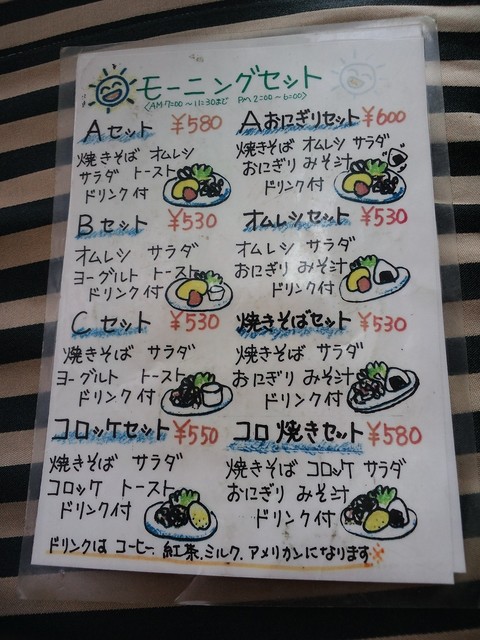 モーニングセット
<AM 7:00～11:30まで PM 2:00～6:00>
Aセット ¥580
焼きそば オムレシ
サラダ トースト
ドリンク付
Aおにぎりセット ¥600
焼きそば オムレシ サラダ
おにぎり みそ汁
ドリンク付
Bセット ¥530
オムレシ サラダ
ヨーグルト トースト
ドリンク付
オムレシセット ¥530
オムレシ サラダ
おにぎり みそ汁
ドリンク付
Cセット ¥530
焼きそば サラダ
ヨーグルト トースト
ドリンク付
焼きそばセット ¥530
焼きそば サラダ
おにぎり みそ汁
ドリンク付
コロッケセット ¥550
焼きそば サラダ
コロッケ トースト
ドリンク付
コロ焼きセット ¥580
焼きそば コロッケ サラダ
おにぎり みそ汁
ドリンク付
ドリンクは コーヒー、紅茶、ミルク、アメリカンになります※